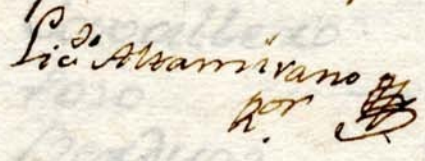 Licdo Altamirano
Ror